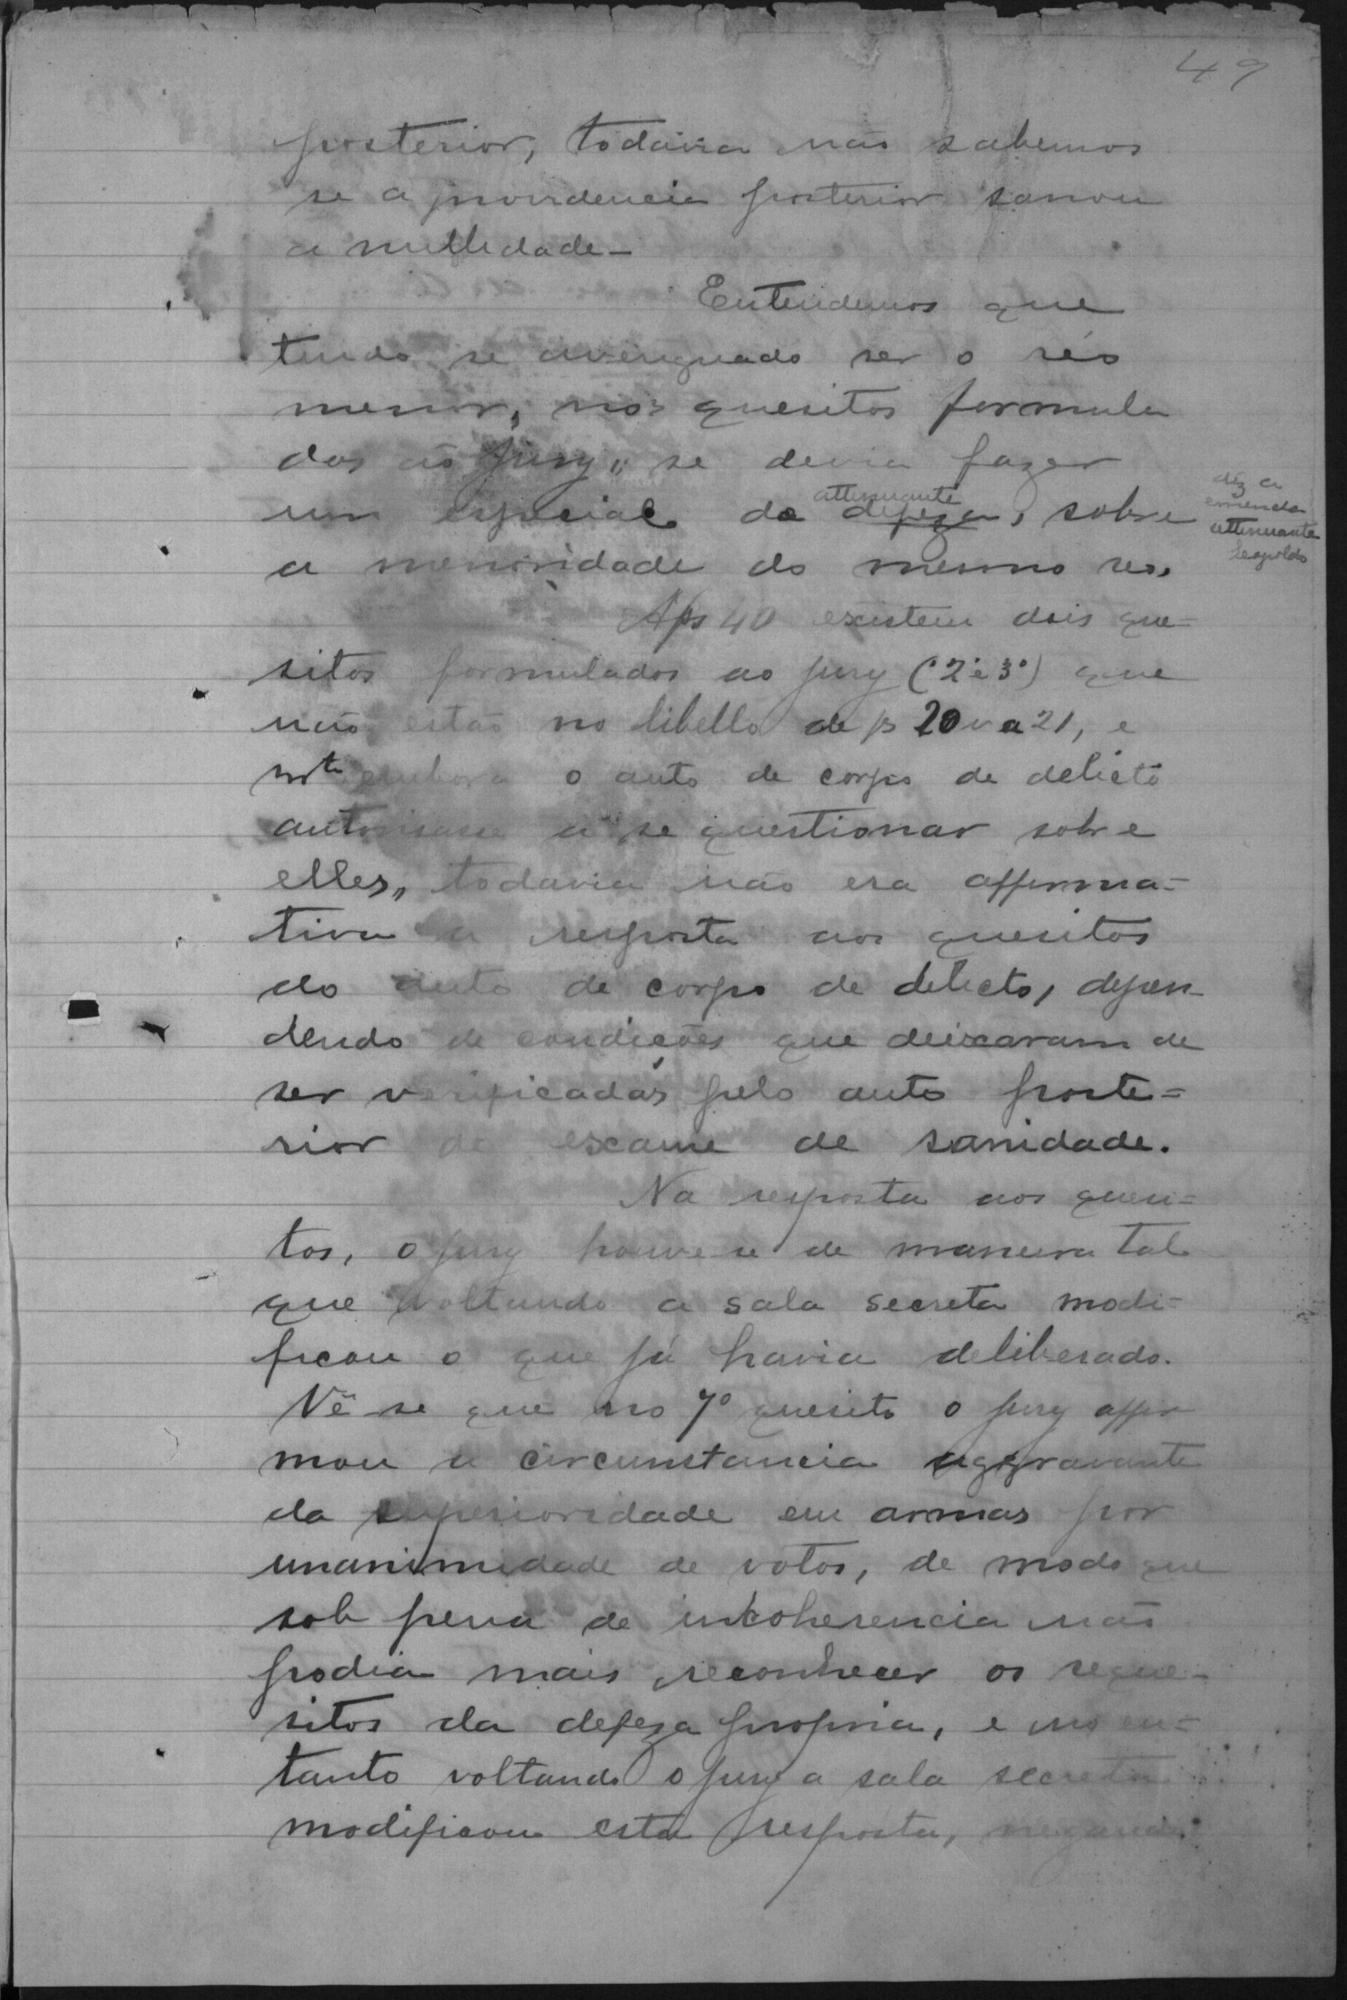 49
posterior, todavia não sabemos
se a providencia posterior sanou
a nullidade -
Entendemos que
tendo se averiguado ser o réo
menor, nos quesitos formula
dos ao jury, se devia fazer
um especial de defeza, sobre
attenuante
diz a
emenda
attenuante
Leopoldo
a menoridade do mesmo reo.
Afs 40 existem dois que-
sitos formulados ao jury (2º e 3º) que
não estão no libello de fs 20 v a 21, e
embora o auto de corpo de delicto
autorisasse a se questionar sobre
elles, todavia não era affirma-
tiva a resposta aos quesitos
do auto de corpo de delicto, depen-
dendo de condições que deixaram de
ser verificadas pelo auto poste-
rior de exame de sanidade.
Na resposta aos quesi-
tos, o jury houve se de maneira tal
que voltando a sala secreta modi-
ficou o que já havia deliberado.
Vê-se que no 7º quesito o jury affir
mou a circumstancia aggravante
da superioridade em armas por
unanimidade de votos, de modo que
sob pena de incoherencia não
podia mais reconhecer os reque-
sitos da defeza propria, e no en-
tanto voltando o jury a sala secreta
modificou esta resposta, negando